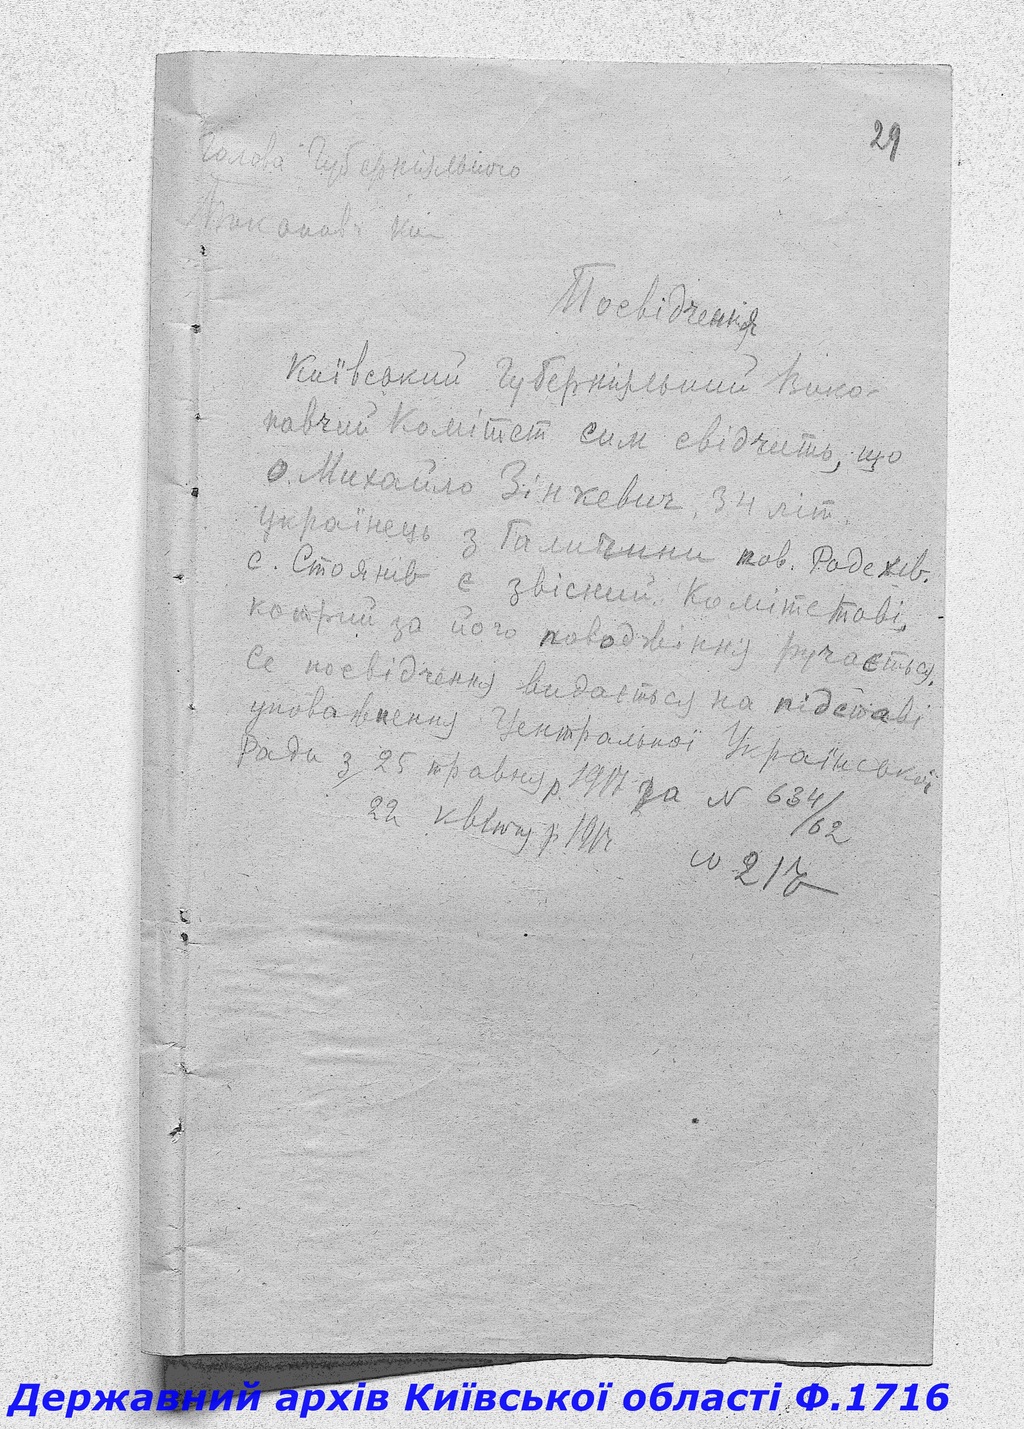 29
Голова Губерніяльного
Виконавч Ки
Посвідчення
Київський Губерніяльний Вико-
навчий Комітет сим свідчить, що
о. Михайло Зінкевич, 34 літ,
українець з Галичини пов. Радехив.
с. Стоянів є звісний Комітетові,
котрий за його поводжіння ручається.
Се посвідчення видається на підставі
уповажнення Центральної Української
Ради з 25 травня р. 1917 за N 634/62
22 квітня р 191
N 217
Державний архів Київської області Ф.1716